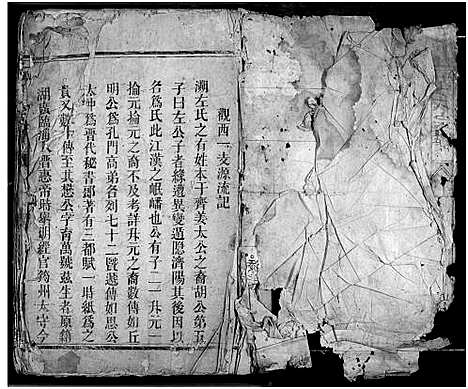 觀西一支源流記
溯左氏之有姓本于齊美太公之裔胡公第五
子曰左公子者緣遭異變遁隱濟陽其後因以
名爲氏此江漢之岷嶓也公有子二一升元一
掄元掄元之裔不及考詳升元之裔數傳如丘
明公爲孔門高弟名列七十二暨遞傳如思公
太冲爲晉代秘書郎著有三都賦一時紙爲之
貴又數十傳至其懋公字育萬號益生者原籍
湖廣 晉惠帝時舉明經官筠州太守今